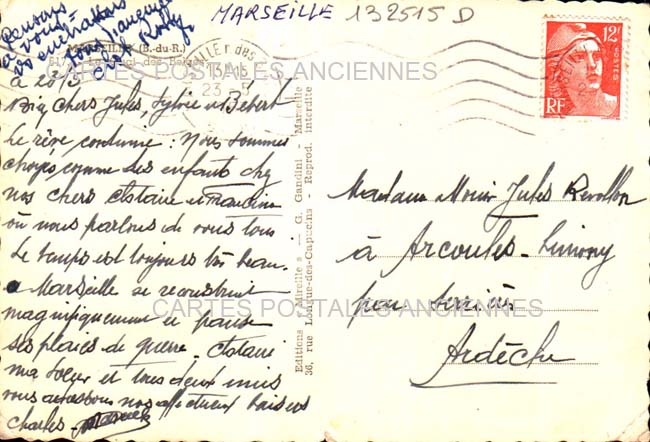 MARSEILLE 132515 D
Pensons
à vous
MARSEILLE (B.-du-R.)
Quai des Belges
13H15
23 - 5
CARTES POSTALES ANCIENNES
12F
POSTES
RF
Bien chers Jules, Sylvie et Bébert
Le rêve continue : Nous sommes
choyés comme des enfants chez
nos chers
où nous parlons de vous tous
Le temps est toujours très beau.
Marseille se reconstruit
magnifiquement et panse
ses plaies de guerre.
ma soeur et tous deux unis
vous adressons nos affectueux baisers
Charles
Editions Mireille - G. Gandini - Marseille
36, rue Longue-des-Capucins - Reprod. interdite
Madame Jules Revollon
à Arcoules-Limony
par Serrières
Ardèche
CARTES POSTALES ANCIENNES